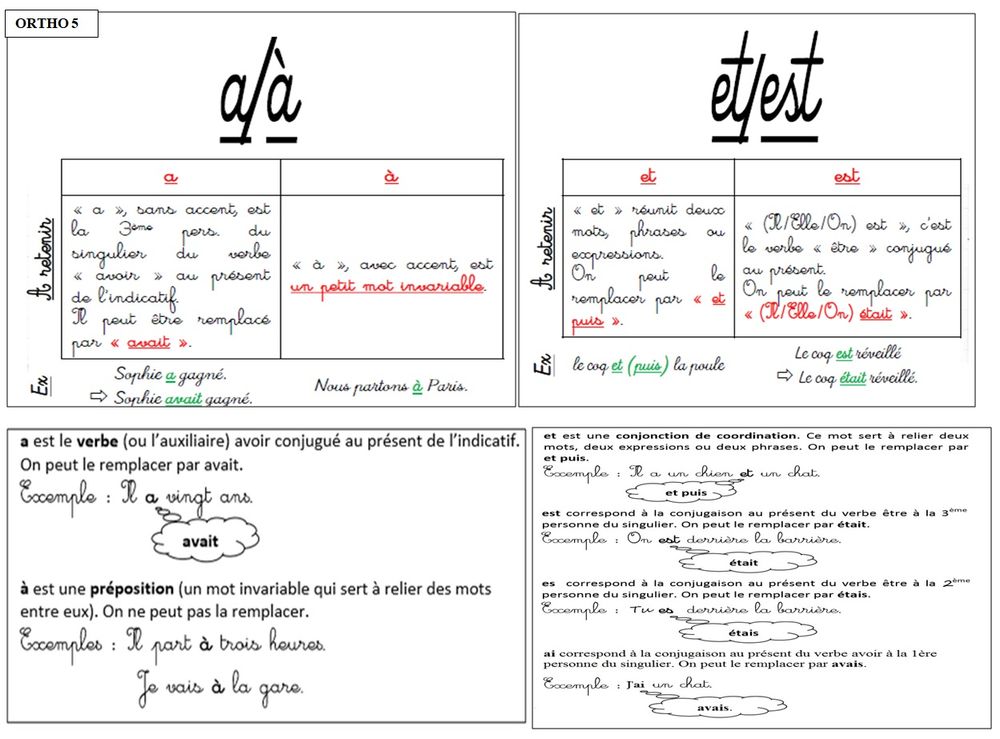 ORTHO 5
a/à
A retenir
a
à
« a », sans accent, est
la 3ème pers. du
singulier du verbe
« avoir » au présent
de l'indicatif.
Il peut être remplacé
par « avait ».
« à », avec accent, est
un petit mot invariable.
Ex
Sophie a gagné.
⇨ Sophie avait gagné.
Nous partons à Paris.
et/est
A retenir
et
est
« et » réunit deux
mots, phrases ou
expressions.
On peut le
remplacer par « et
puis ».
« (Il/Elle/On) est », c'est
le verbe « être » conjugué
au présent.
On peut le remplacer par
« (Il/Elle/On) était ».
Ex
le coq et (puis) la poule
Le coq est réveillé
⇨ Le coq était réveillé.
a est le verbe (ou l'auxiliaire) avoir conjugué au présent de l'indicatif.
On peut le remplacer par avait.
Exemple : Il a vingt ans.
avait
à est une préposition (un mot invariable qui sert à relier des mots
entre eux). On ne peut pas la remplacer.
Exemples : Il part à trois heures.
Je vais à la gare.
et est une conjonction de coordination. Ce mot sert à relier deux
mots, deux expressions ou deux phrases. On peut le remplacer par
et puis.
Exemple : Il a un chien et un chat.
et puis
est correspond à la conjugaison au présent du verbe être à la 3ème
personne du singulier. On peut le remplacer par était.
Exemple : On est derrière la barrière.
était
es correspond à la conjugaison au présent du verbe être à la 2ème
personne du singulier. On peut le remplacer par étais.
Exemple : Tu es derrière la barrière.
étais
ai correspond à la conjugaison au présent du verbe avoir à la 1ère
personne du singulier. On peut le remplacer par avais.
Exemple : J'ai un chat.
avais.